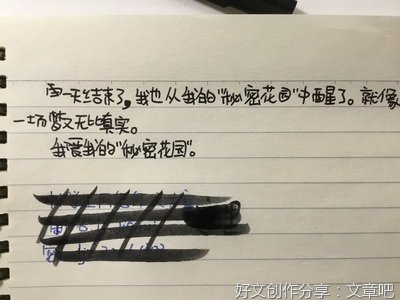 雨天结束了,我也从我的"秘密花园"中醒了。就像
一场梦又无比真实。
我爱我的"秘密花园"。
好文创作分享:文章吧